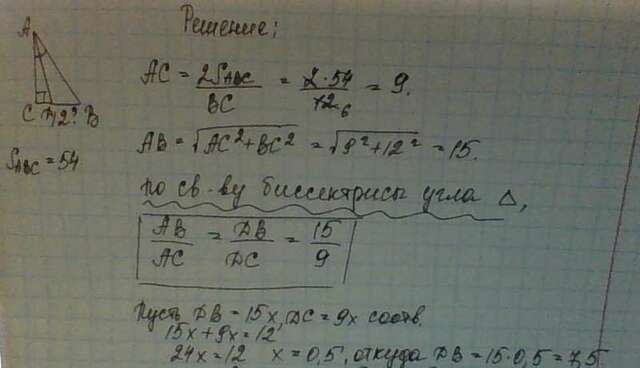 Решение:
A
C 12? B
S_ABC = 54
AC = 2S_ABC / BC = 2·54 / 12 6 = 9.
AB = √AC² + BC² = √9² + 12² = 15.
по св-ву биссектрисы угла △,
AB / AC = DB / DC = 15 / 9
Пусть DB = 15x, DC = 9x соотв.
15x + 9x = 12
24x = 12 x = 0,5, откуда DB = 15·0,5 = 7,5